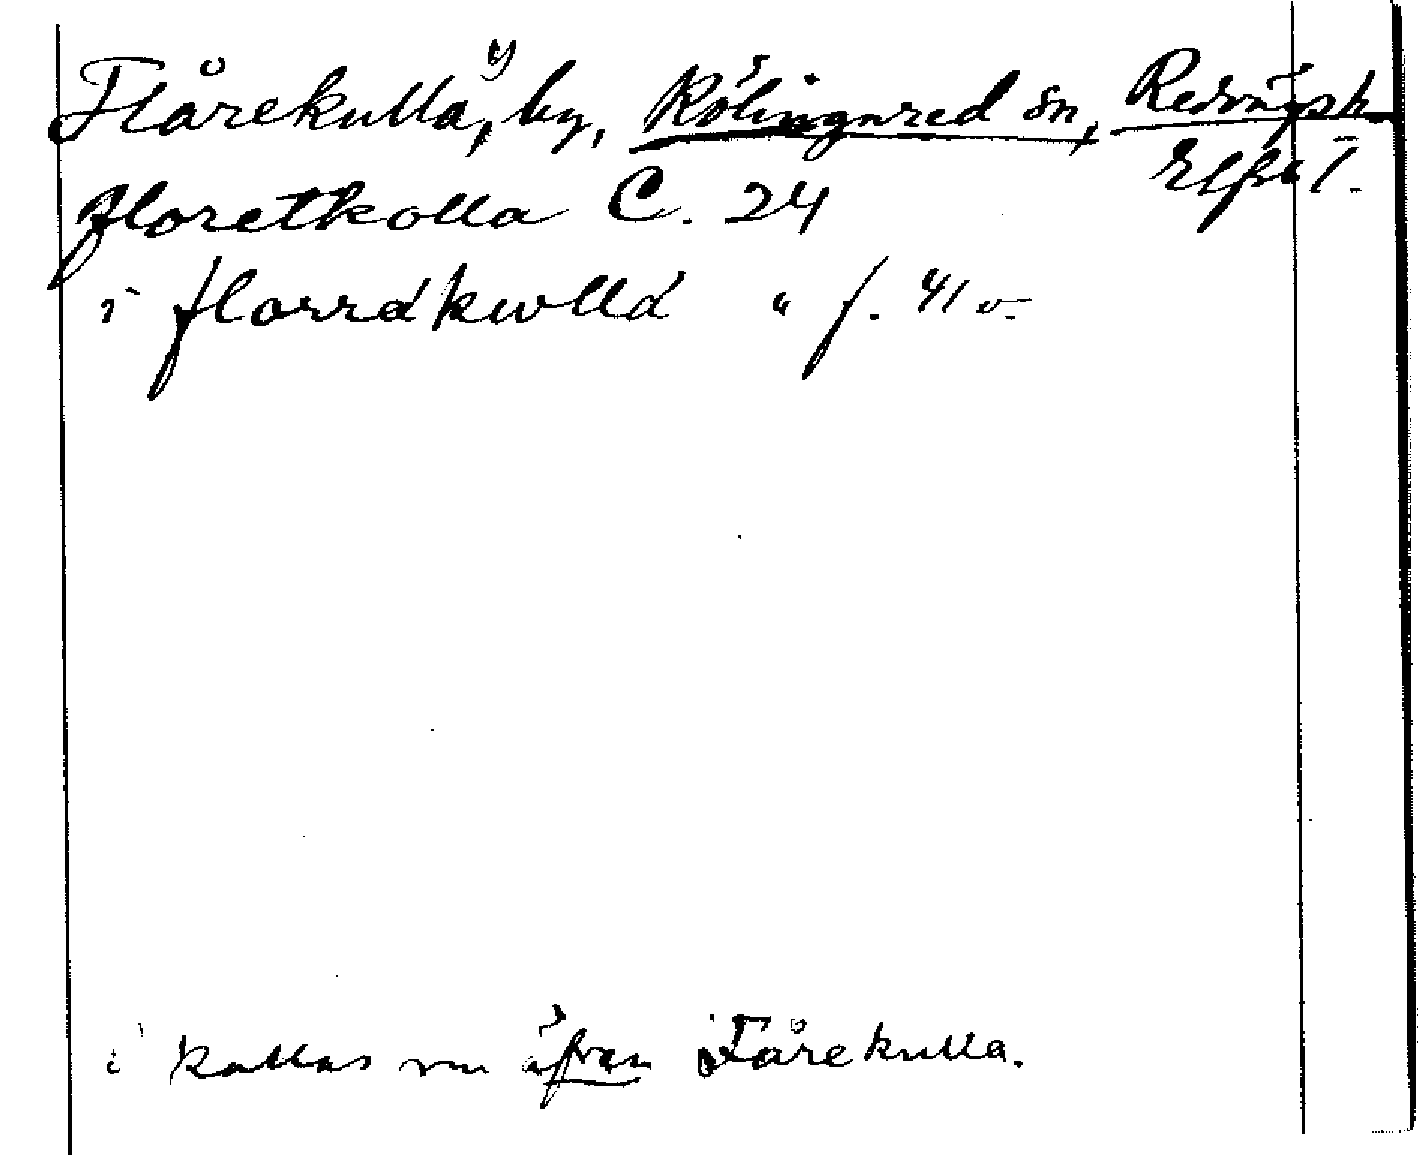 Flårekulla, ¹⁾ by, Kölingared sn, Redvägs h.
Elfsb l.
floretkolla C. 24
i florrakwlla " f. 41 v.
¹ kallas nu äfven Fårekulla.